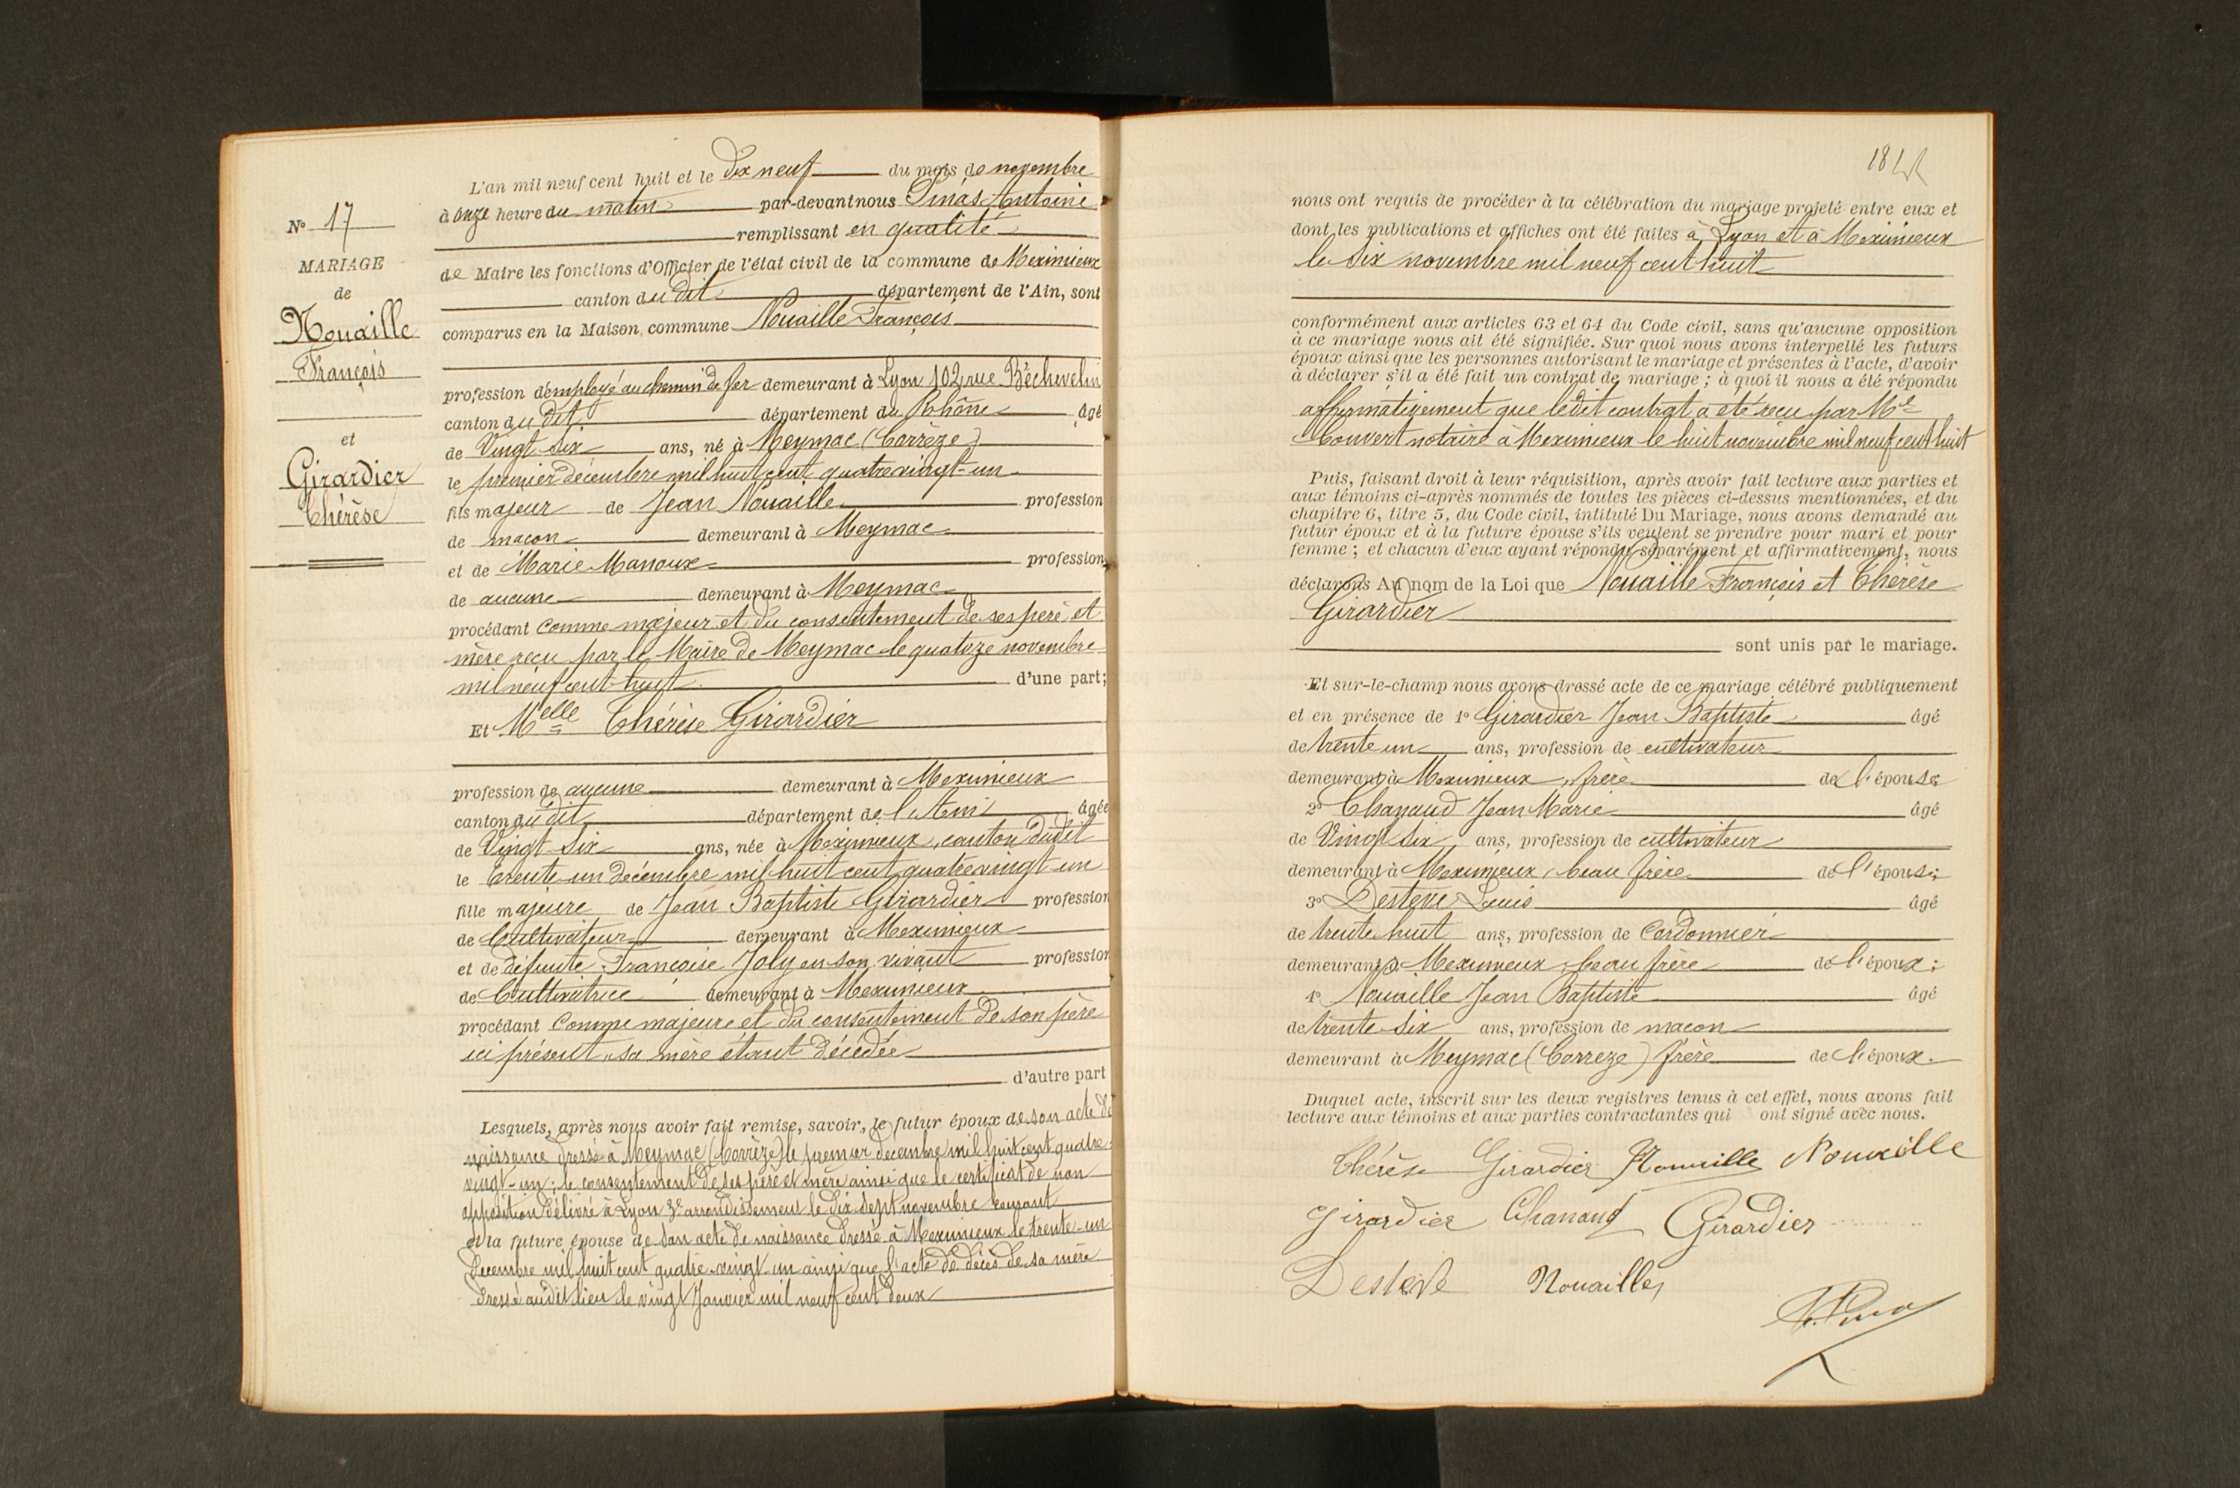 N° 17
MARIAGE
de
Nouaille
François
et
Girardier
Thérèse
L'an mil neuf cent huit et le dix neuf du mois de novembre
à onze heure du matin par-devant nous Pinas Antoine
remplissant en qualité
de Maire les fonctions d'Officier de l'état civil de la commune de Meximieux
canton du dit département de l'Ain, sont
comparus en la Maison commune Nouaille François
profession d'employé au chemin de fer demeurant à Lyon 102, rue Béchevelin
canton du dit département du Rhône âgé
de Vingt six ans, né à Meymac (Corrèze)
le premier décembre mil huit cent quatre vingt-un
fils majeur de Jean Nouaille profession
de maçon demeurant à Meymac
et de Marie Manoux profession
de aucune demeurant à Meymac
procédant comme majeur et du consentement de ses père et
mère reçu par le Maire de Meymac le quatorze novembre
mil neuf cent huit d'une part;
Et Melle Thérèse Girardier
profession de aucune demeurant à Meximieux
canton du dit département de l'Ain âgée
de Vingt six ans, née à Meximieux, canton dudit
le trente un décembre mil huit cent quatre vingt un
fille majeure de Jean Baptiste Girardier profession
de Cultivateur demeurant à Meximieux
et de défunte Françoise Joly en son vivant profession
de Cultivatrice demeurant à Meximieux
procédant comme majeure et du consentement de son père
ici présent, sa mère étant décédée
d'autre part
Lesquels, après nous avoir fait remise, savoir, le futur époux de son acte de
naissance dressé à Meymac (Corrèze) le premier décembre mil huit cent quatre
vingt-un; le consentement de ses père et mère ainsi que le certificat de non
opposition délivré à Lyon 3e arrondissement le dix sept novembre courant
et la future épouse de son acte de naissance dressé à Meximieux le trente-un
décembre mil huit cent quatre-vingt-un ainsi que l'acte de décès de sa mère
dressé audit lieu le vingt Janvier mil neuf cent deux
181
nous ont requis de procéder à la célébration du mariage projeté entre eux et
dont les publications et affiches ont été faites à Lyon et à Meximieux
le six novembre mil neuf cent huit
conformément aux articles 63 et 64 du Code civil, sans qu'aucune opposition
à ce mariage nous ait été signifiée. Sur quoi nous avons interpellé les futurs
époux ainsi que les personnes autorisant le mariage et présentes à l'acte, d'avoir
à déclarer s'il a été fait un contrat de mariage; à quoi il nous a été répondu
affirmativement que ledit contrat a été reçu par Me
Convert notaire à Meximieux le huit novembre mil neuf cent huit
Puis, faisant droit à leur réquisition, après avoir fait lecture aux parties et
aux témoins ci-après nommés de toutes les pièces ci-dessus mentionnées, et du
chapitre 6, titre 5, du Code civil, intitulé Du Mariage, nous avons demandé au
futur époux et à la future épouse s'ils veulent se prendre pour mari et pour
femme; et chacun d'eux ayant répondu séparément et affirmativement, nous
déclarons Au nom de la Loi que Nouaille François et Thérèse
Girardier
sont unis par le mariage.
Et sur-le-champ nous avons dressé acte de ce mariage célébré publiquement
et en présence de 1° Girardier Jean Baptiste âgé
de trente un ans, profession de cultivateur
demeurant à Meximieux, frère de l'épouse
2° Chanaud Jean Marie âgé
de Vingt six ans, profession de cultivateur
demeurant à Meximieux, beau frère de l'épouse;
3° Desteve Louis âgé
de trente huit ans, profession de Cordonnier
demeurant à Meximieux, beau frère de l'époux;
4° Nouaille Jean Baptiste âgé
de trente six ans, profession de maçon
demeurant à Meymac (Corrèze) frère de l'époux.
Duquel acte, inscrit sur les deux registres tenus à cet effet, nous avons fait
lecture aux témoins et aux parties contractantes qui ont signé avec nous.
Thérèse Girardier Nouaille Nouaille
Girardier Chanaud Girardier
Desteve Nouaille